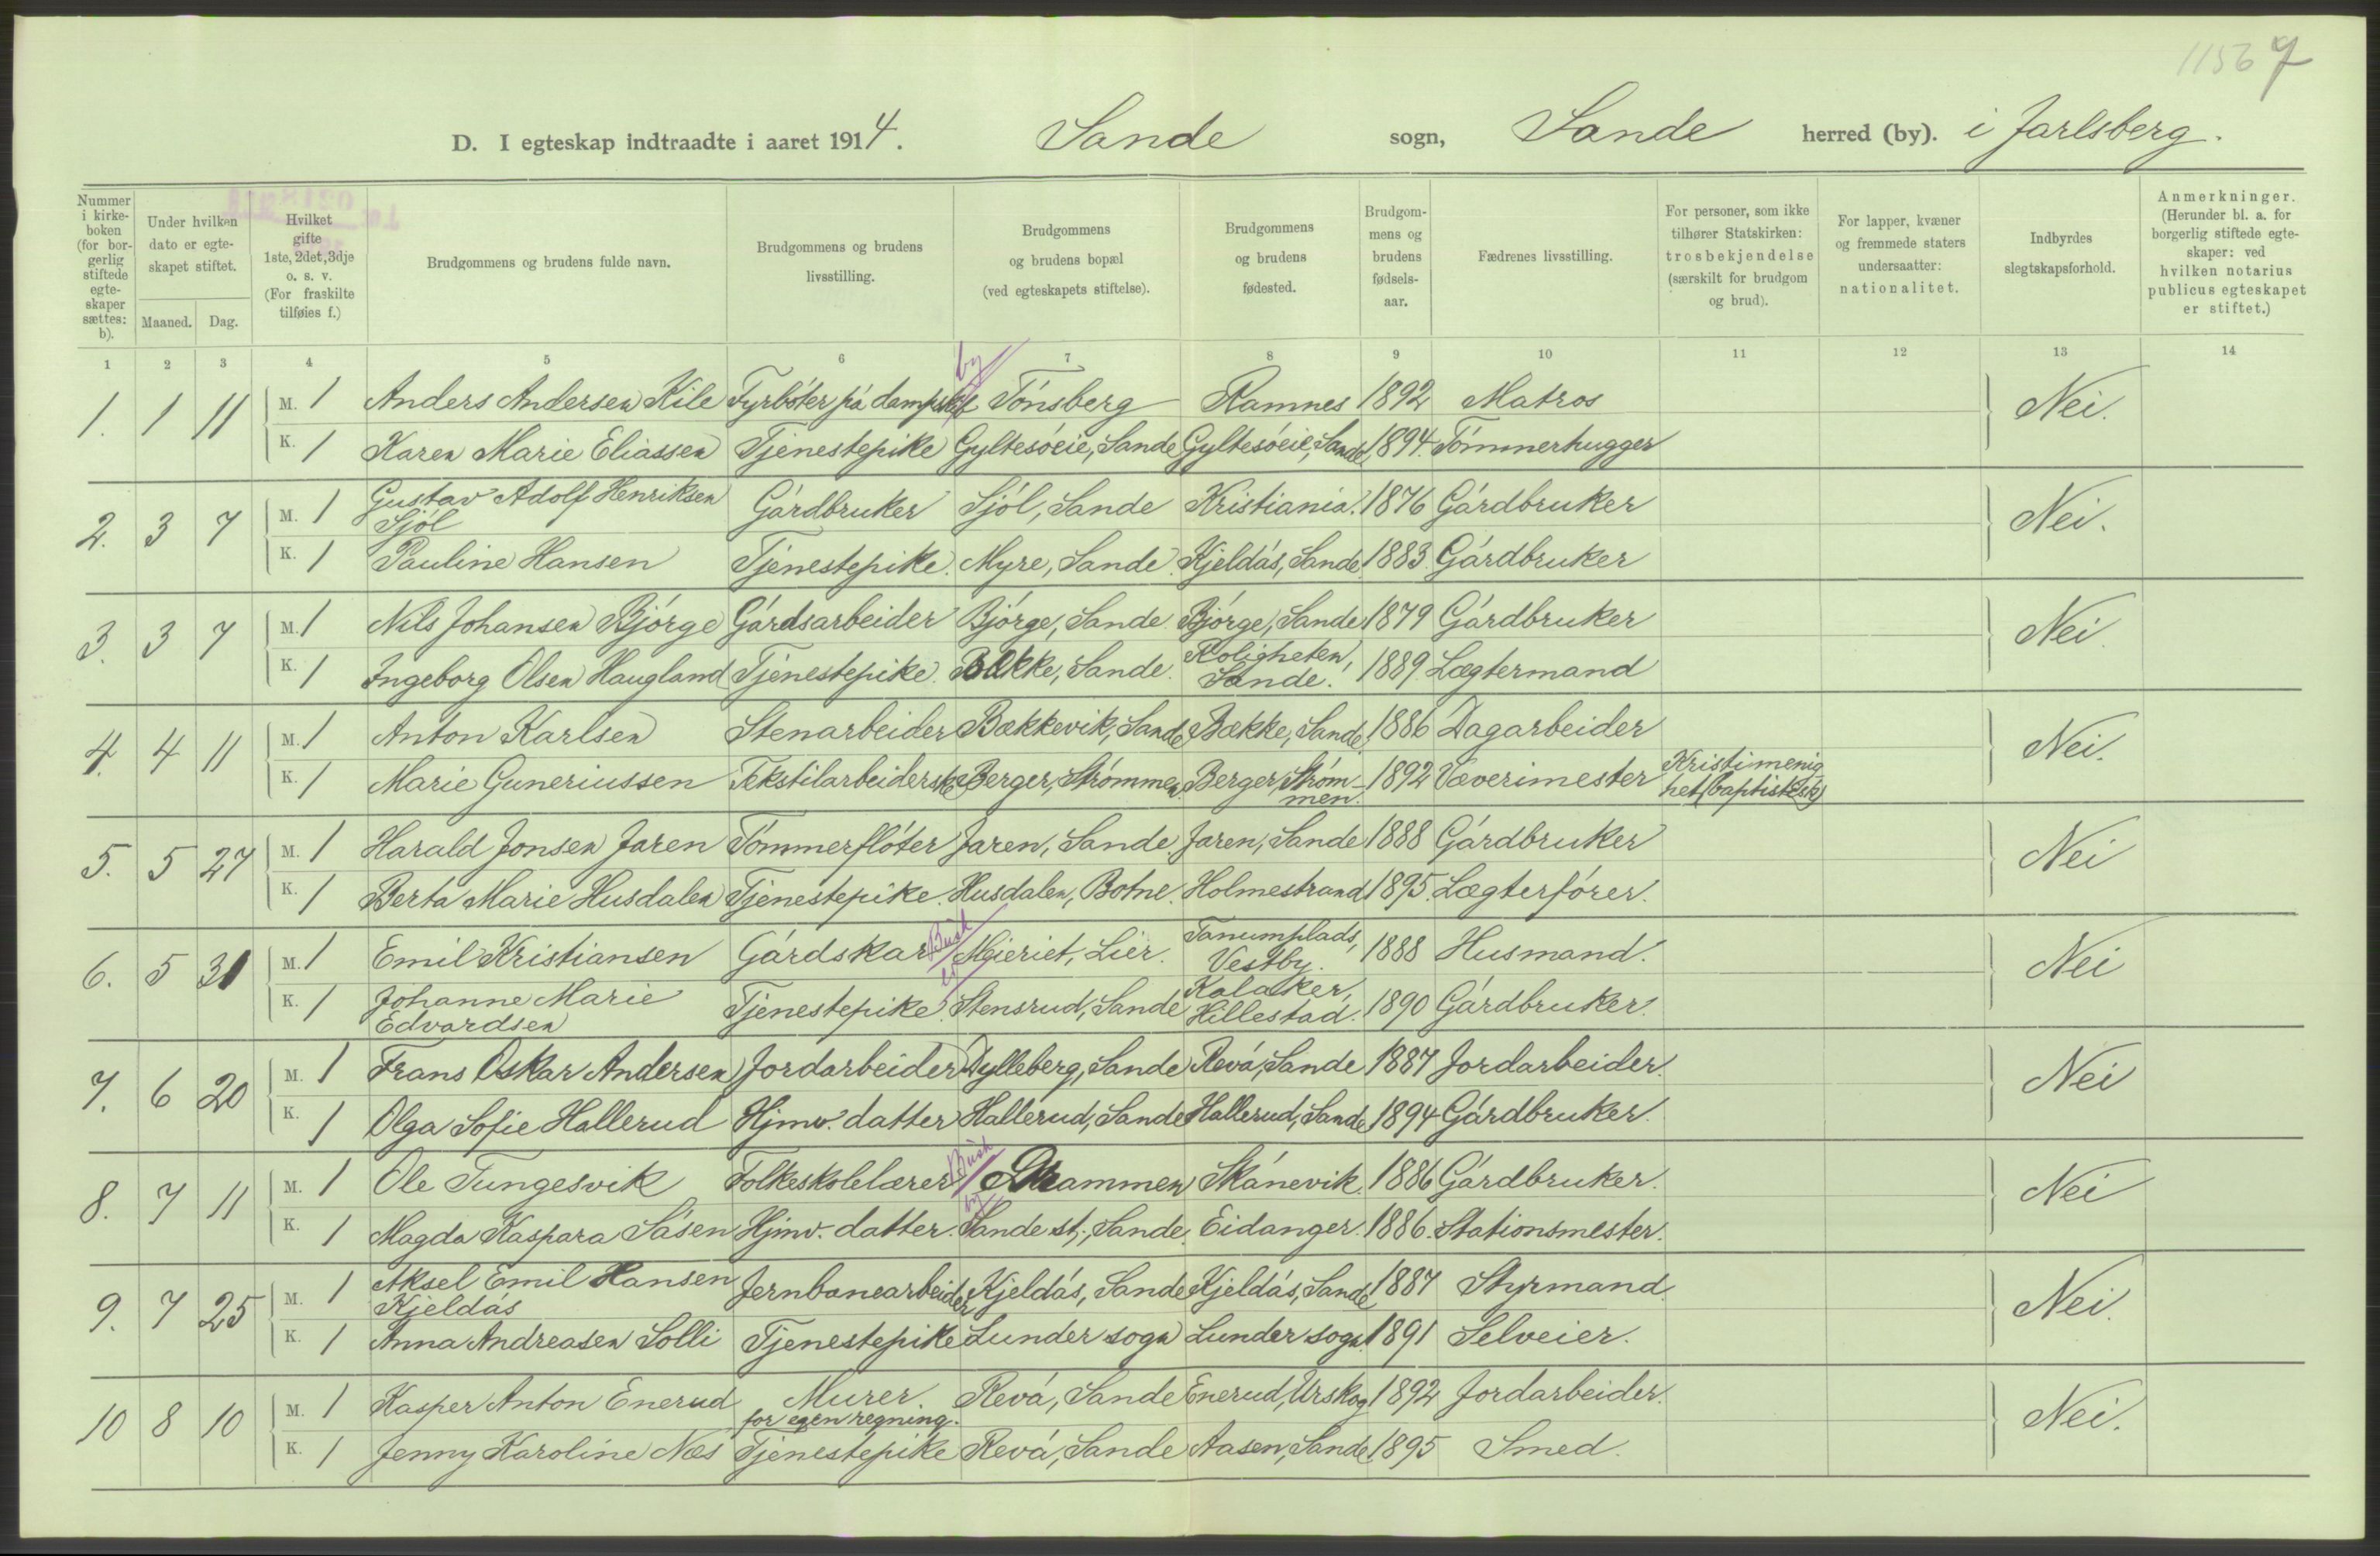 1156 7
D. I egteskap indtraadte i aaret 1914. Sande sogn, Sande herred (by). i Jarlsberg.
Nummer i kirkeboken (for borgerlig stiftede egteskaper sættes: b).
Under hvilken dato er egteskapet stiftet.
Maaned. Dag.
Hvilket gifte 1ste, 2det, 3dje o. s. v. (For fraskilte tilføies f.)
Brudgommens og brudens fulde navn.
Brudgommens og brudens livsstilling.
Brudgommens og brudens bopæl (ved egteskapets stiftelse).
Brudgommens og brudens fødested.
Brudgommens og brudens fødselsaar.
Fædrenes livsstilling.
For personer, som ikke tilhører Statskirken: trosbekjendelse (særskilt for brudgom og brud).
For lapper, kvæner og fremmede staters undersaatter: nationalitet.
Indbyrdes slegtskapsforhold.
Anmerkninger. (Herunder bl. a. for borgerlig stiftede egteskaper: ved hvilken notarius publicus egteskapet er stiftet.)
1 2 3 4 5 6 7 8 9 10 11 12 13 14
1. 1 11 M. 1 Anders Andersen Kile Fyrbøter på dampskib by Tönsberg Ramnes 1892 Matros Nei.
K. 1 Karen Marie Eliassen Tjenestepike Gyltesöeie, Sande Gyltesöeie, Sande 1894. Tömmerhugger
2. 3 7 M. 1 Gustav Adolf Henriksen Sjöl Gårdbruker Sjöl, Sande Kristiania. 1876 Gårdbruker Nei.
K. 1 Pauline Hansen Tjenestepike. Myre, Sande. Kjeldås, Sande. 1883 Gårdbruker
3. 3 7 M. 1 Nils Johansen Bjórge Gårdsarbeider Bjórge, Sande. Bjórge, Sande 1879 Gårdbruker Nei.
K. 1 Ingeborg Olsen Haugland Tjenestepike. Bække, Sande. Roligheten, Sande. 1889 Lægtermand
4. 4 11 M. 1 Anton Karlsen Stenarbeider Bækkevik, Sande Bække, Sande 1886 Dagarbeider Nei.
K. 1 Marie Guneriussen Tekstilarbeiderske Berger, Strømmen. Berger, Strømmen. 1892 Væverimester Kristimenighet (baptistisk)
5. 5 27 M. 1 Harald Jonsen Jaren Tömmerflöter Jaren, Sande. Jaren, Sande 1888 Gårdbruker Nei
K. 1 Berta Marie Husdalen Tjenestepike. Husdalen, Botne. Holmestrand 1895. Lægterförer.
6. 5 31 M. 1 Emil Kristiansen Gårdskar Busk Meieriet, Lier. Tanumplads, Vestby. 1888 Husmand. Nei
K. 1 Johanne Marie Edvardsen Tjenestepike. Stensrud, Sande Kolaker, Hillestad. 1890 Gårdbruker.
7. 6 20 M. 1 Frans Oskar Andersen Jordarbeider Dylleberg, Sande Revå, Sande 1887 Jordarbeider. Nei
K. 1 Olga Sofie Hallerud Hjmv. datter Hallerud, Sande Hallerud, Sande 1894 Gårdbruker.
8. 7 11 M. 1 Ole Tungesvik Folkeskolelærer Busk by Drammen Skånevik. 1886 Gårdbruker. Nei
K. 1 Magda Kaspara Såsen Hjmv. datter. Sande st., Sande. Eidanger. 1886. Stationsmester.
9. 7 25 M. 1 Aksel Emil Hansen Kjeldås Jernbanearbeider Kjeldås, Sande Kjeldås, Sande 1887 Styrmand. Nei.
K. 1 Anna Andreasen Solli Tjenestepike Lunder sogn Lunder sogn. 1891 Selveier.
10 8 10 M. 1 Kasper Anton Enerud Murer. for egen regning. Revå, Sande Enerud, Urskog 1892 Jordarbeider. Nei.
K. 1 Jenny Karoline Næs Tjenestepike Revå, Sande Aasen, Sande 1895 Smed.